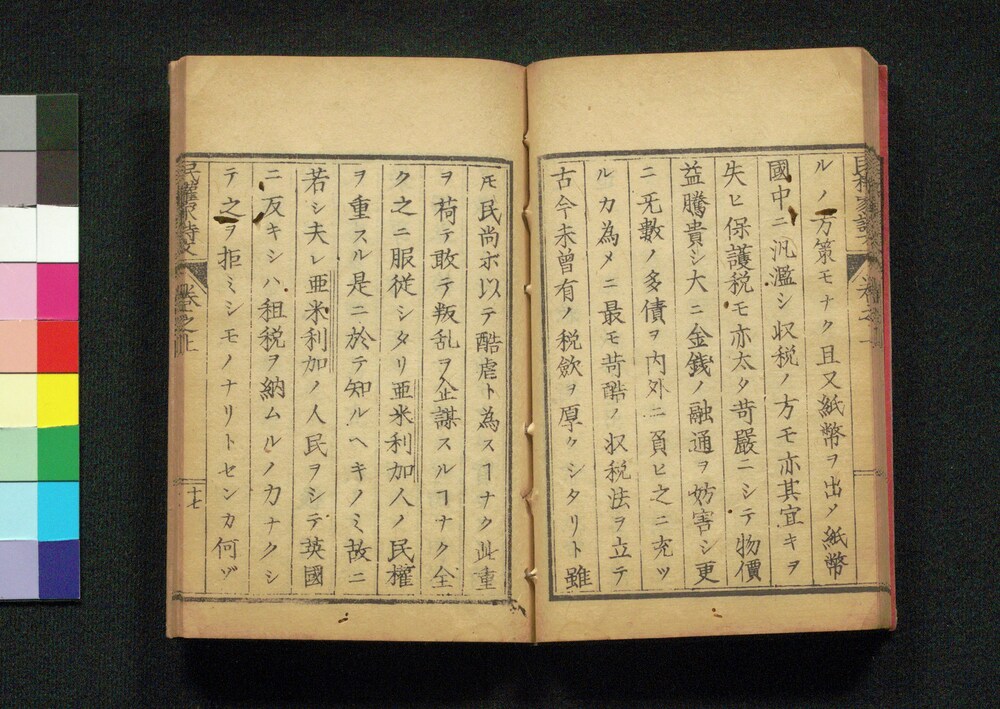 ルノ方策モナク且又紙幣ヲ出メ紙幣
國中ニ汎濫シ収税ノ方モ亦其宜キヲ
失ヒ保護税モ亦太タ苛嚴ニシテ物價
益騰貴シ大ニ金銭ノ融通ヲ妨害シ更
ニ旡數ノ多債ヲ内外ニ負ヒ之ニ充ツ
ルカ為メニ最モ苛酷ノ収税法ヲ立テ
古今未曽有ノ税歛ヲ厚クシタリト雖
モ民尚ホ以テ酷虐ト為スヿナク此重
ヲ荷テ敢テ叛乱ヲ企謀スルヿナク全
ク之ニ服從シタリ亜米利加人ノ民權
ヲ重スル是ニ於テ知ルヘキノミ故ニ
若シ夫レ亜米利加ノ人民ヲシテ英國
ニ反キシハ租税ヲ納ムルノ力ナクシ
テ之ヲ拒ミシモノナリトセンカ何ゾ
卷之上
十七